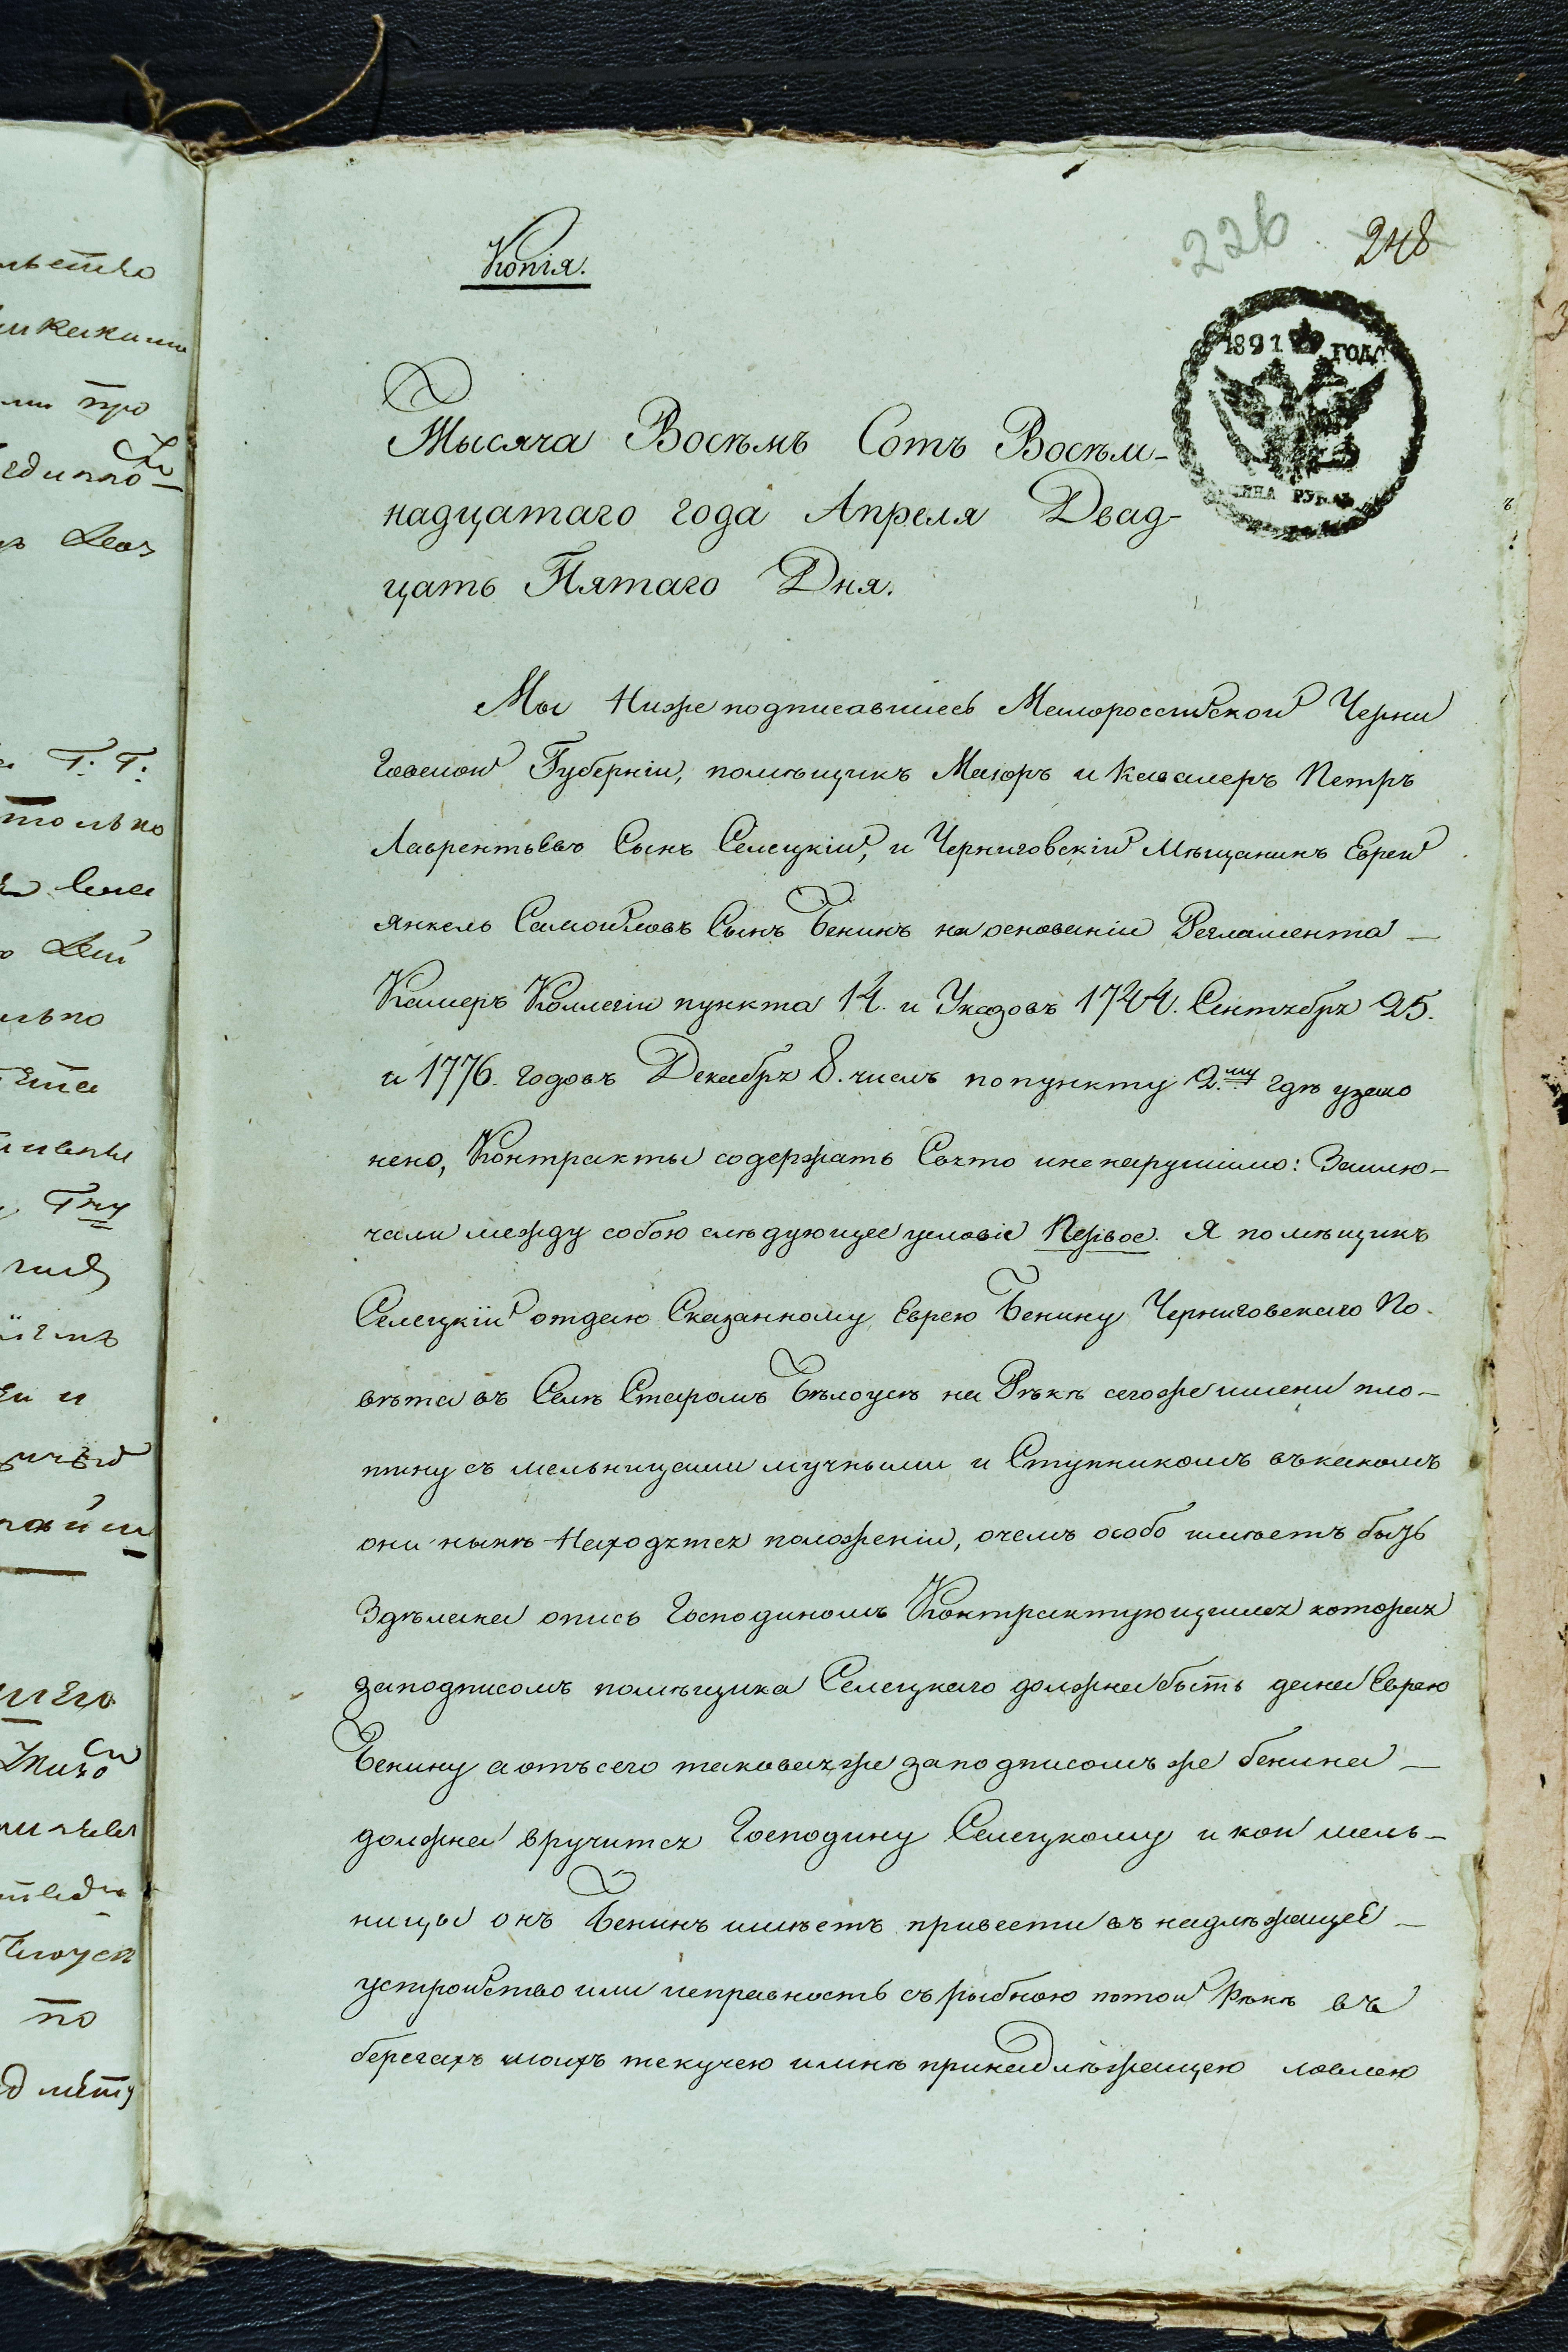 Копія.
226 248
1891 ГОДА
ЦЕНА РУБЛЬ
Тысяча Восемь Сотъ Восем-
надцатаго года Апреля Двад-
цать Пятаго Дня.
Мы Нижеподписавшиеся Малороссійской Черни
говской Губерніи, помѣщикъ Маіоръ и Кавалеръ Петръ
Лаврентьевъ Сынъ Селецкій, и Черниговскій Мѣщанинъ Еврей
Янкель Самойловъ Сынъ Бенинъ на основаніи Регламента —
Камеръ Коллегіи пункта 14. и Указовъ 1744. Сентября 25.
и 1776. годовъ Декабря 8. числъ попункту 2.му гдѣ узако
нено, Контракты содержать Свято иненарушимо: Заклю-
чали между собою слѣдующее условіе Первое. Я помѣщикъ
Селецкій отдаю Сказанному Еврею Бенину Черниговскаго По-
вѣта въ Селѣ Старомъ Бѣлоусѣ на Рѣкѣ сегоже имени пло-
тину съ мельницами мучными и Ступникомъ въкакомъ
они нынѣ Находятся положеніи, очемъ особо имѣетъ быть
Здѣлана опись Господиномъ Контрактующимся которая
заподписомъ помѣщика Селецкаго должна быть дана Еврею
Бенину аотъсего таковаяже заподписомъ же бенина —
должна вручится Господину Селецкому икои мель-
ницы онъ Бенинъ имѣетъ привести въ надлѣжащее —
устройство или исправность съ рыбною потой Рѣкѣ въ
берегахъ моихъ текучею имнѣ принадлѣжащею ловлею